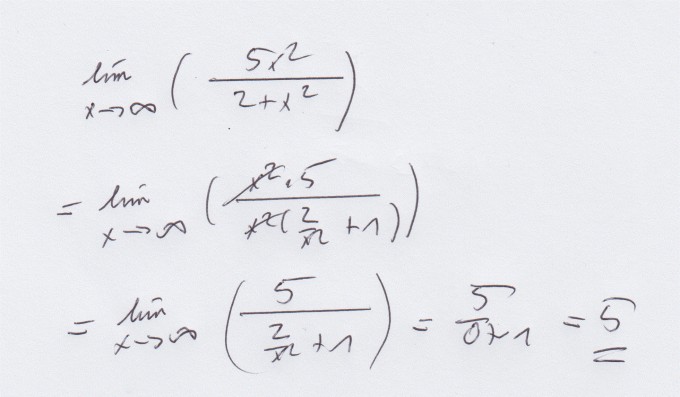 lim x→∞ ( 5x² / 2+x² )
= lim x→∞ ( x²·5 / x²( 2/x² +1) )
= lim x→∞ ( 5 / 2/x² +1 ) = 5 / 0+1 = 5